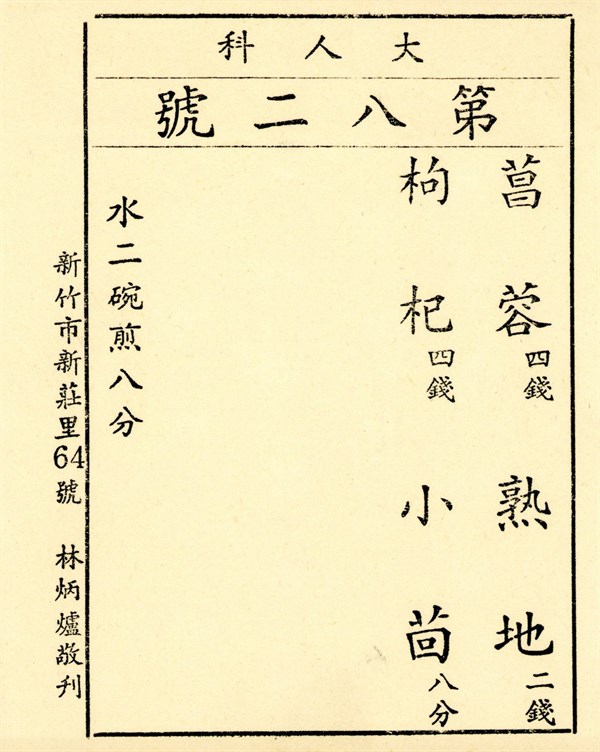 大人科
第八二號
菖蓉四錢 熟地二錢
枸杞四錢 小茴八分
水二碗煎八分
新竹市新莊里64號 林炳爐敬刋